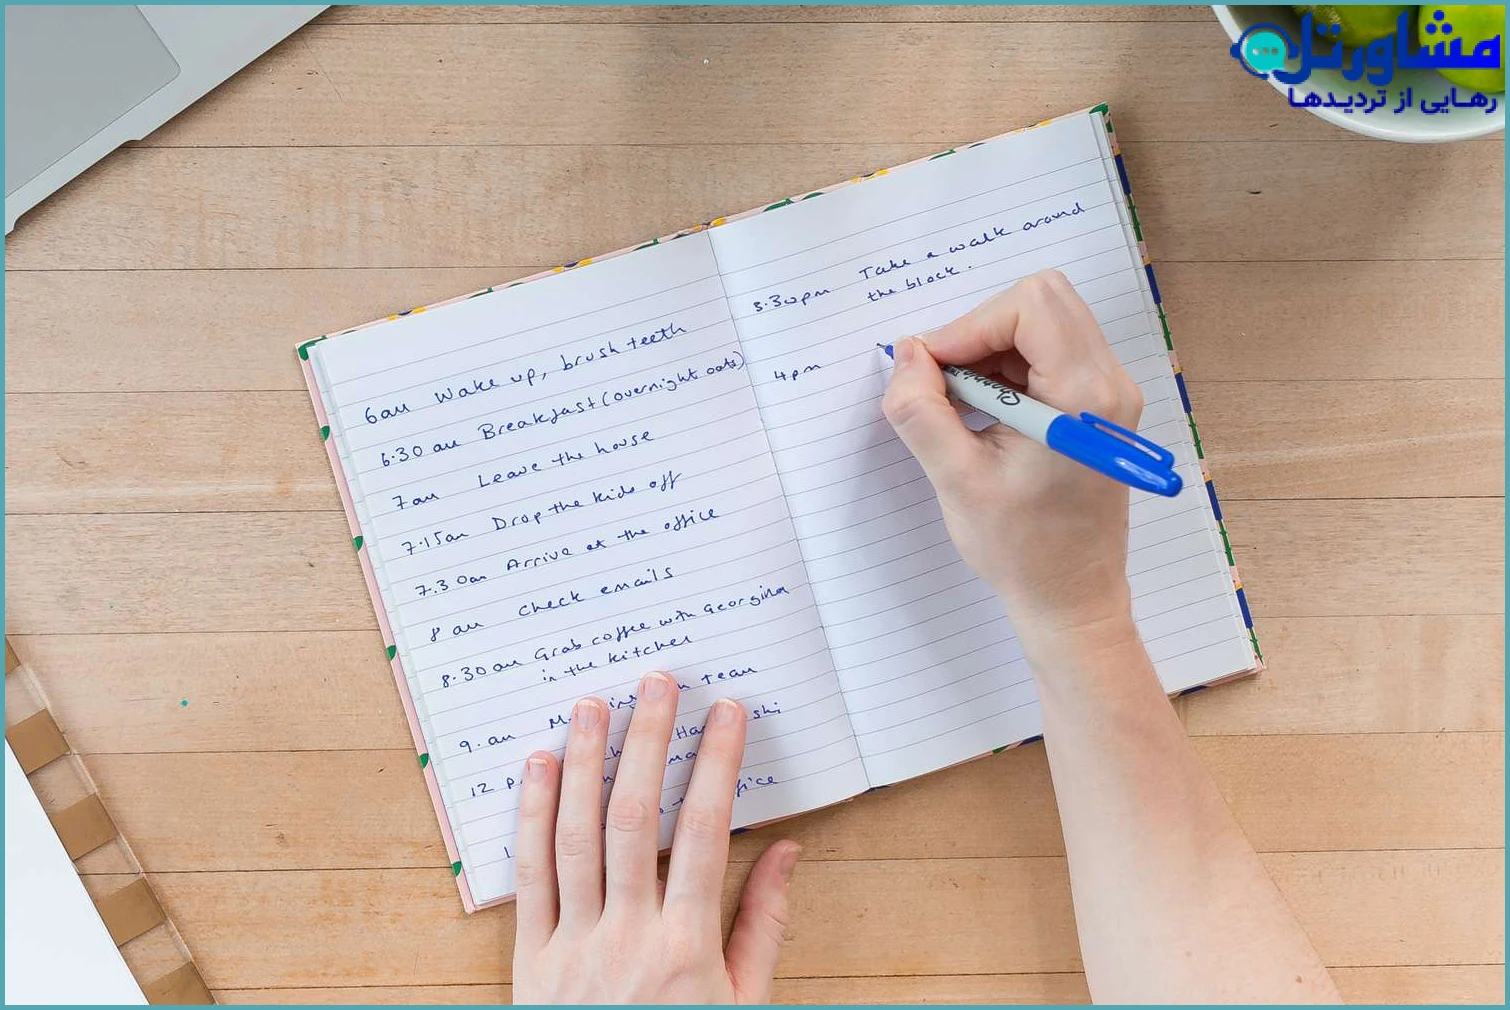 6am Wake up, brush teeth
6.30 am Breakfast (overnight oats)
7am Leave the house
7.15am Drop the kids off
7.30am Arrive at the office
8 am check emails
8.30 am Grab coffee with Georgina
in the kitchen
9. am team
12
3.30pm Take a walk around
the block.
4pm
Sharpie
مشاورتل
رهایی از تردیدها